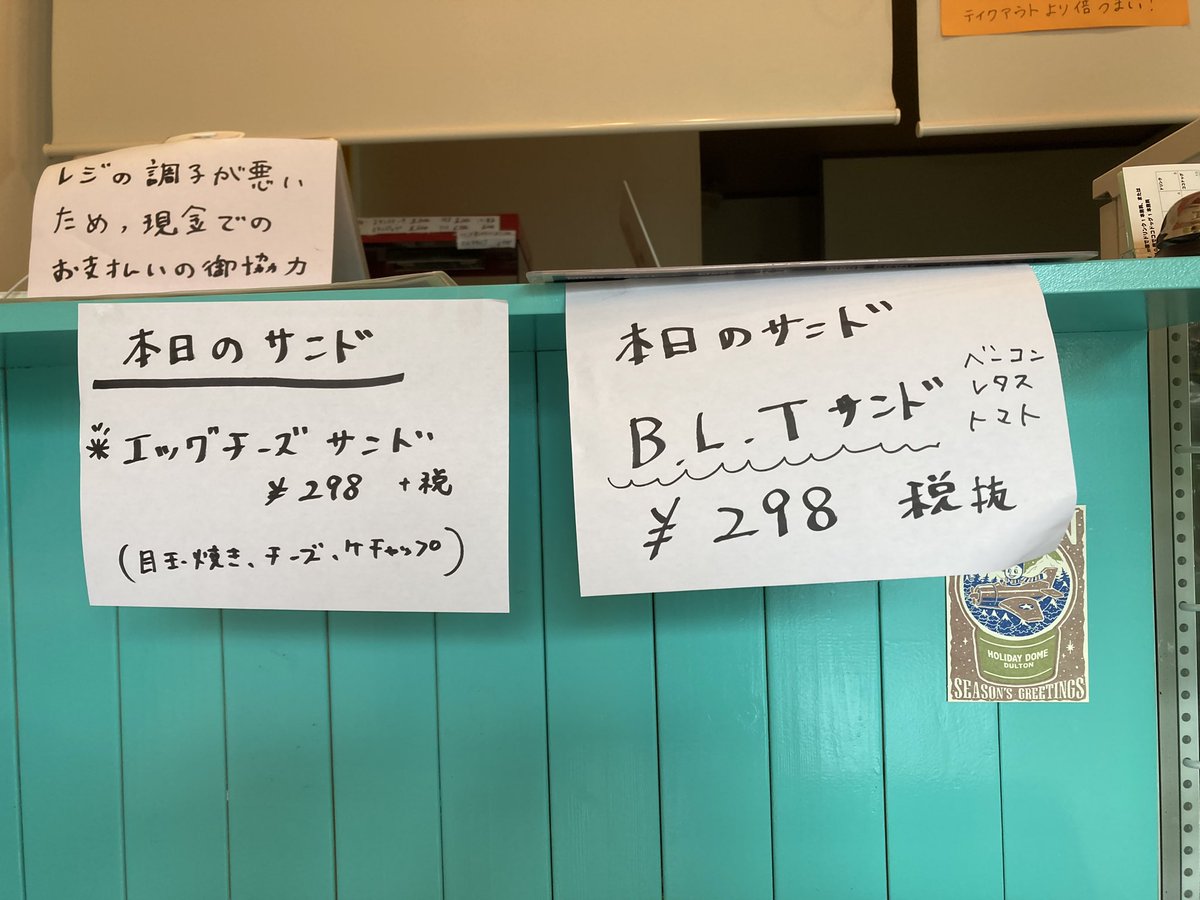 テイクアウトより倍うまい!
レジの調子が悪い
ため,現金での
お支払いの御協力
本日のサンド
*エッグチーズサンド
¥298 +税
(目玉焼き、チーズ、ケチャップ)
本日のサンド
B.L.Tサンド
ベーコン
レタス
トマト
¥298 税抜
HOLIDAY DOME
DULTON
SEASON'S GREETINGS